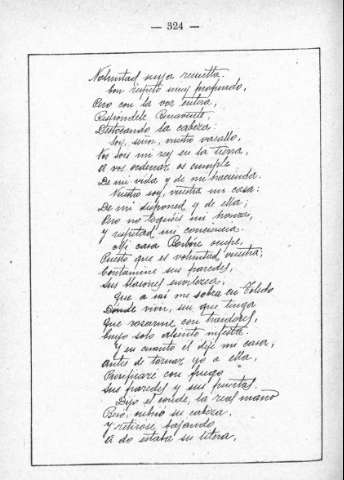 — 324 —
Voluntad suya
Con respeto muy profundo,
Pero con la voz entera,
Respondele Benavente,
Destocando la cabeza:
Soy, señor, vuestro vasallo,
Vos sois mi rey en la tierra,
A vos ordenar os cumple
De mi vida y de mi hacienda.
Vuestro soy, vuestra mi casa:
De mi disponed y de ella;
Pero no toquéis mi honra,
Y respetad mi conciencia.
Mi casa Borbón ocupe,
Puesto que es voluntad vuestra;
Contamine sus paredes,
Sus blasones envilezca,
que a mi me sobra en Toledo
Donde vivir, sin que tenga
Que rozarme con traidores,
Cuyo solo aliento infesta.
Y en cuanto el deje mi casa,
Antes de tornar yo a ella,
Purificaré con fuego
Sus paredes y sus puertas.
Dijo el conde, la real mano
Besó, cubrió su cabeza,
Y retirose, bajando
A do estaba su litera,